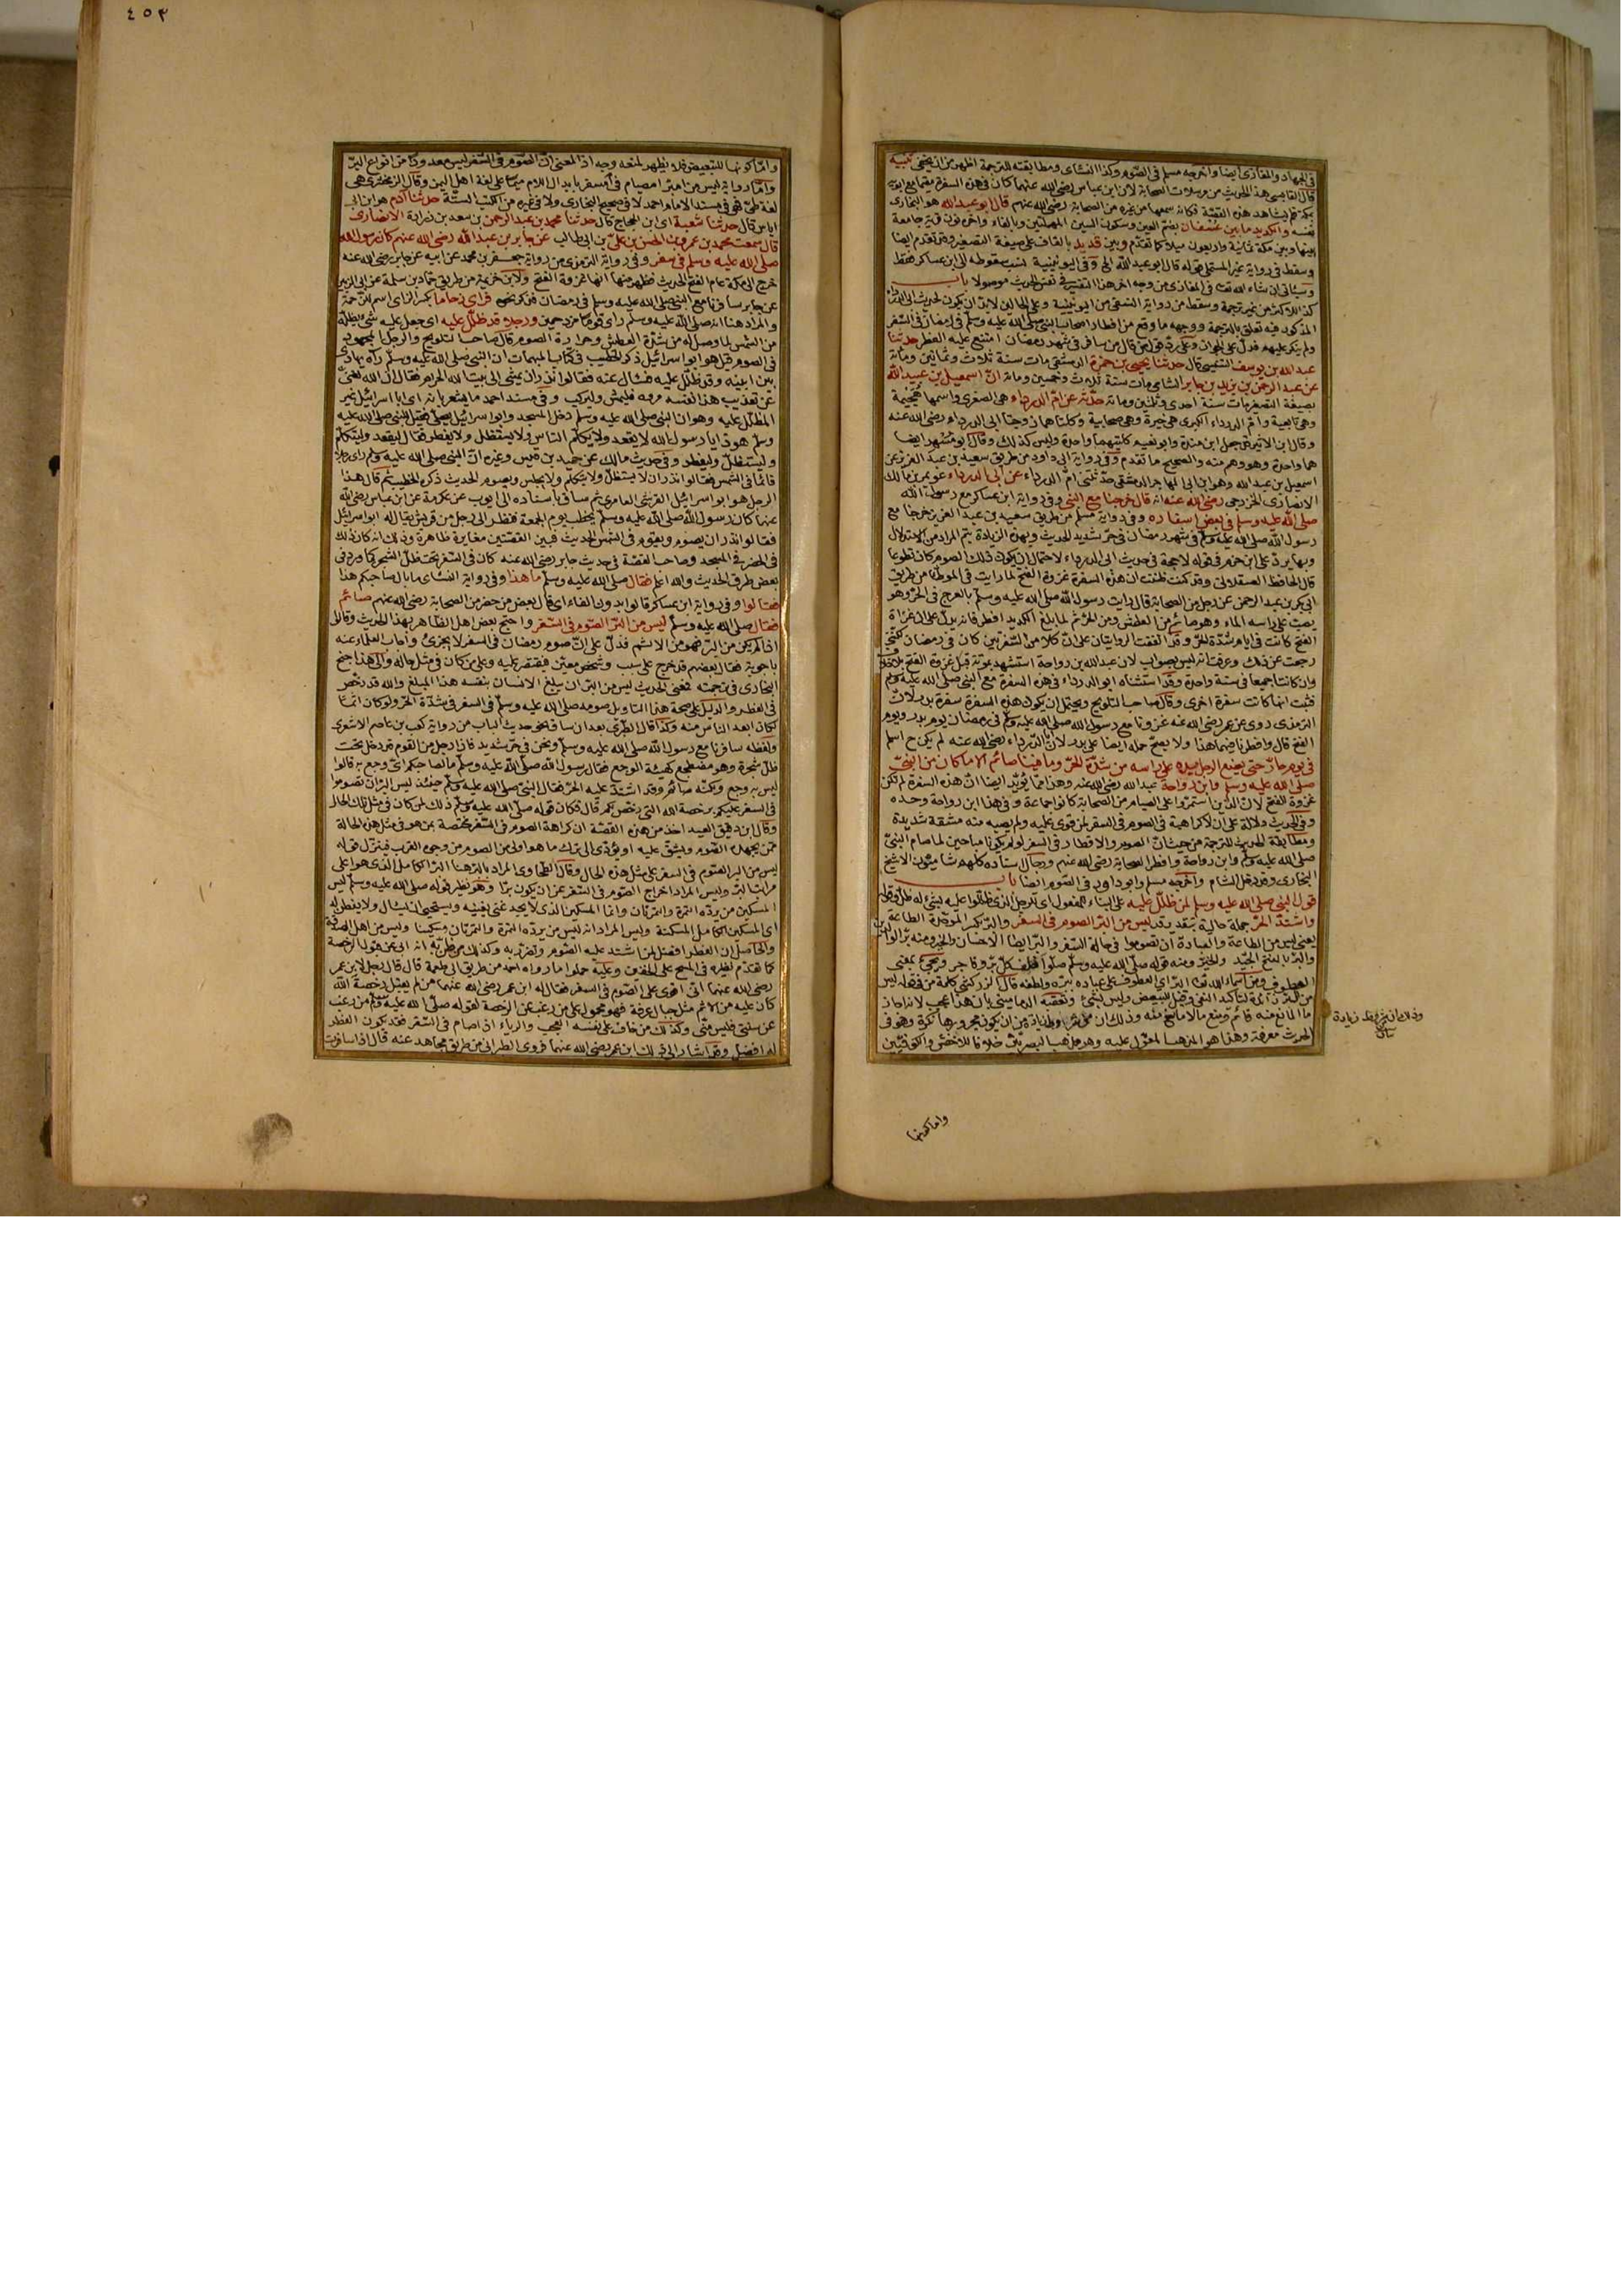 ٤٥٣
في الجهاد والمغازي ايضا واخرجه مسلم في الصوم وكذا النسائي ومطابقته للترجمة اظهر من ان يخفى تنبيه
قال القابسي هذا الحديث من مرسلات الصحابة لان ابن عباس رضي الله عنهما كان في هذه السفرة مقيما مع ابويه
بمكة فلم يشاهد هذه القصة فكانه سمعها من غيره من الصحابة رضي الله عنهم قال ابو عبد الله هو البخاري
نفسه والكديد ما بين عسفان بضم العين وسكون السين المهملتين وبالفاء واخره نون قرية جامعة
بينها وبين مكة ثمانية واربعون ميلا كما تقدم وبين قديد بالقاف على صيغة التصغير وقد تقدم ايضا
وسقط في رواية غير المستملي قوله قال ابو عبد الله الخ وفي اليونينية نسب سقوطه الى ابن عساكر فقط
وسيأتي ان شاء الله تعالى في المغازي من وجه اخر هذا التفسير في نفس الحديث موصولا باب
كذا للاكثر من غير ترجمة وسقط من رواية النسفي من اليونينية وعلى الحالين لابد ان يكون لحديث ابي الدرداء
المذكور فيه تعلق بالترجمة ووجهه ما وقع من افطار اصحاب النبي صلى الله عليه وسلم في رمضان في السفر
ولم ينكر عليهم فدل على الجواز وعلى رد قول من قال من سافر في شهر رمضان امتنع عليه الفطر حدثنا
عبد الله بن يوسف التنيسي قال حدثنا يحيى بن حمزة الدمشقي مات سنة ثلاث وثمانين ومائة
عن عبد الرحمن بن يزيد بن جابر الشامي مات سنة ثلاث وخمسين ومائة ان اسمعيل بن عبيد الله
بصيغة التصغير مات سنة احدى وثلثين ومائة حدثه عن ام الدرداء هي الصغرى واسمها هجيمة
وهي تابعية وام الدرداء الكبرى هي خيرة وهي صحابية وكلتاهما زوجتا ابي الدرداء رضي الله عنه
وقال ابن الاثير قد جعل ابن مندة وابو نعيم كلتيهما واحدة وليس كذلك وقال ابو مسهر ايضا
هما واحدة وهو وهم منه والصحيح ما تقدم وفي رواية ابي داود من طريق سعيد بن عبد العزيز عن
اسمعيل بن عبيد الله وهو ابن ابي المهاجر الدمشقي حدثتني ام الدرداء عن ابي الدرداء عويمر بن مالك
الانصاري الخزرجي رضي الله عنه انه قال خرجنا مع النبي وفي رواية ابن عساكر مع رسول الله
صلى الله عليه وسلم في بعض اسفاره وفي رواية مسلم من طريق سعيد بن عبد العزيز خرجنا مع
رسول الله صلى الله عليه وسلم في شهر رمضان في حر شديد الحديث وبهذه الزيادة يتم المراد من الاستدلال
وبها يرد على ابن حزم في قوله لا حجة في حديث ابي الدرداء لاحتمال ان يكون ذلك الصوم كان تطوعا
قال الحافظ العسقلاني وقد كنت ظننت ان هذه السفرة غزوة الفتح لما رايت في الموطأ من طريق
ابي بكر بن عبد الرحمن عن رجل من الصحابة قال رايت رسول الله صلى الله عليه وسلم بالعرج في الحر وهو
يصب على راسه الماء وهو صائم من العطش ومن الحر ثم لما بلغ الكديد افطر فانه يدل على ان غزاة
الفتح كانت في ايام شدة الحر وقد اتفقت الروايتان على ان كلا من السفرتين كان في رمضان لكنني
رجعت عن ذلك وعرفت انه ليس بصواب لان عبد الله بن رواحة استشهد بموتة قبل غزوة الفتح بلا خلاف
وان كانتا جميعا في سنة واحدة وقد استثناه ابو الدرداء في هذه السفرة مع النبي صلى الله عليه وسلم
فثبت انها كانت سفرة اخرى وقال صاحب التلويح ويحتمل ان يكون هذه السفرة سفرة بدر لان
الترمذي روى عن عمر رضي الله عنه غزونا مع رسول الله صلى الله عليه وسلم في رمضان يوم بدر ويوم
الفتح قال وافطرنا فيهما هذا ولا يصح حمله ايضا على بدر لان ابا الدرداء رضي الله عنه لم يكن ح اسلم
في يوم حار حتى يضع الرجل يده على راسه من شدة الحر وما فينا صائم الا ما كان من النبي
صلى الله عليه وسلم وابن رواحة عبد الله رضي الله عنه وهذا مما يؤيد ايضا ان هذه السفرة لم تكن
غزوة الفتح لان الذين استمروا على الصيام من الصحابة كانوا جماعة وفي هذا ابن رواحة وحده
وفي الحديث دلالة على ان لا كراهية في الصوم في السفر لمن قوي عليه ولم يصبه منه مشقة شديدة
ومطابقة الحديث للترجمة من حيث ان الصوم والافطار في السفر لو لم يكونا مباحين لما صام النبي
صلى الله عليه وسلم وابن رواحة وافطر الصحابة رضي الله عنهم ورجال اسناده كلهم شاميون الا شيخ
البخاري وقد دخل الشام واخرجه مسلم وابو داود في الصوم ايضا باب
قول النبي صلى الله عليه وسلم لمن ظلل عليه على البناء للمفعول اي للرجل الذي ظللوا عليه بشيء له ظل وقوله
واشتد الحر جملة حالية بتقدير قد ليس من البر الصوم في السفر والبر بكسر الموحدة الطاعة
يعني ليس من الطاعة والعبادة ان تصوموا في حالة السفر والبر ايضا الاحسان والخير ومنه بر الوالدين
والبر بالفتح الجيد والخير ومنه قوله صلى الله عليه وسلم صلوا خلف كل بر وفاجر ويجيء بمعنى
العطوف ومن اسماء الله تعالى البر اي العطوف على عباده ببره ولطفه قال الزركشي كلمة من في قوله ليس
من البر زائدة لتأكيد النفي وقيل للتبعيض وليس بشيء وتعقبه الدماميني بان هذا عجيب لانه اجاز
ما المانع منه قائم ومنع ما لا مانع منه وذلك ان من شروط زيادة من ان يكون مجرورها نكرة وهو في
الحديث معرفة وهذا هو المذهب المعول عليه وهو مذهب البصريين خلافا للاخفش والكوفيين
واما كونها
واما كونها للتبعيض فلا يظهر لمنعه وجه اذ المعنى ان الصوم في السفر ليس معدودا من انواع البر
واما رواية ليس من امبر امصيام في امسفر بابدال اللام ميما على لغة اهل اليمن وقال الزمخشري هي
لغة طي فهو في مسند الامام احمد لا في صحيح البخاري ولا في غيره من الكتب الستة حدثنا ادم هو ابن ابي
اياس قال حدثنا شعبة اي ابن الحجاج قال حدثنا محمد بن عبد الرحمن بن سعد بن زرارة الانصاري
قال سمعت محمد بن عمرو بن الحسن بن علي بن ابي طالب عن جابر بن عبد الله رضي الله عنهم كان رسول الله
صلى الله عليه وسلم في سفر وفي رواية الترمذي من رواية جعفر بن محمد عن ابيه عن جابر رضي الله عنه
خرج الى مكة عام الفتح الحديث فظهر منها انها غزوة الفتح ولابن خزيمة من طريق حماد بن سلمة عن ابي الزبير
عن جابر سافرنا مع النبي صلى الله عليه وسلم في رمضان فذكر نحوه فراى زحاما بكسر الزاي اسم للزحمة
والمراد هنا انه صلى الله عليه وسلم راى قوما مزدحمين ورجلا قد ظلل عليه اي جعل عليه شيء يظله
من الشمس لما وصل له من شدة العطش وحرارة الصوم قال صاحب التلويح والرجل المجهود
في الصوم قيل هو ابو اسرائيل ذكر الخطيب في كتاب المبهمات ان النبي صلى الله عليه وسلم رآه يهادى
بين ابنيه وقد ظلل عليه فسأل عنه فقالوا نذر ان يمشي الى بيت الله الحرام فقال ان الله لغني
عن تعذيب هذا نفسه مروه فليمش وليركب وفي مسند احمد ما يشعر بانه اي ابا اسرائيل غير
المظلل عليه وهو ان النبي صلى الله عليه وسلم دخل المسجد وابو اسرائيل يصلي فقيل للنبي صلى الله عليه
وسلم هو ذا يا رسول الله لا يقعد ولا يكلم الناس ولا يستظل ولا يفطر فقال ليقعد وليتكلم
وليستظل وليفطر وفي حديث مالك عن حميد بن قيس وغيره ان النبي صلى الله عليه وسلم راى رجلا
قائما في الشمس فقالوا نذر ان لا يستظل ولا يتكلم ولا يجلس ويصوم الحديث ذكره الخطيب ثم قال هذا
الرجل هو ابو اسرائيل القرشي العامري ثم ساق باسناده الى ايوب عن عكرمة عن ابن عباس رضي الله
عنهما كان رسول الله صلى الله عليه وسلم يخطب يوم الجمعة فنظر الى رجل من قريش يقال له ابو اسرائيل
فقالوا نذر ان يصوم ويقوم في الشمس الحديث فبين القصتين مغايرة ظاهرة وذلك انه كان ذلك
في الحضر في المسجد وصاحب القصة في حديث جابر رضي الله عنه كان في السفر تحت ظل الشجر كما ورد في
بعض طرق الحديث والله اعلم فقال صلى الله عليه وسلم ما هذا وفي رواية النسائي ما بال صاحبكم هذا
فقالوا وفي رواية ابن عساكر قالوا بدون الفاء اي قال بعض من حضر من الصحابة رضي الله عنهم صائم
فقال صلى الله عليه وسلم ليس من البر الصوم في السفر واحتج بعض اهل الظاهر بهذا الحديث وقالوا
اذا لم يكن من البر فهو من الاثم فدل على ان صوم رمضان في السفر لا يجزئ واجاب العلماء عنه
باجوبة فقال بعضهم قد خرج على سبب وشخص معين فيقتصر عليه وعلى من كان في مثل حاله والى هذا جنح
البخاري في ترجمته فمعنى الحديث ليس من البر ان يبلغ الانسان بنفسه هذا المبلغ والله قد رخص
في الفطر والدليل على صحة هذا التاويل صومه صلى الله عليه وسلم في السفر في شدة الحر ولو كان اثما
لكان ابعد الناس منه وكذا قال الطبري بعد ان ساق نحو حديث الباب من رواية كعب بن عاصم الاشعري
ولفظه سافرنا مع رسول الله صلى الله عليه وسلم ونحن في حر شديد فاذا رجل من القوم قد دخل تحت
ظل شجرة وهو مضطجع كهيئة الوجع فقال رسول الله صلى الله عليه وسلم ما لصاحبكم اي وجع به قالوا
ليس به وجع ولكنه صائم وقد اشتد عليه الحر فقال النبي صلى الله عليه وسلم حينئذ ليس البر ان تصوموا
في السفر عليكم برخصة الله التي رخص لكم قال فكان قوله صلى الله عليه وسلم ذلك لمن كان في مثل تلك الحال
وقال ابن دقيق العيد اخذ من هذه القصة ان كراهة الصوم في السفر مختصة بمن هو في مثل هذه الحالة
ممن يجهده الصوم ويشق عليه او يؤدي الى ترك ما هو اولى من الصوم من وجوه القرب فينزل قوله
ليس من البر الصوم في السفر على مثل هذه الحال وقال الطحاوي المراد بالبر هنا البر الكامل الذي هو اعلى
مراتب البر وليس المراد اخراج الصوم في السفر عن ان يكون برا وهو نظير قوله صلى الله عليه وسلم ليس
المسكين من يرده التمرة والتمرتان وانما المسكين الذي لا يجد غنى يغنيه ويستحيي ان يسأل ولا يفطن له
اي المسكين الكامل المسكنة وليس المراد انه ليس من يرده التمرة والتمرتان مسكينا وليس من اهل الصدقة
والحاصل ان الفطر افضل لمن اشتد عليه الصوم وتضرر به وكذلك من ظن به انه اعرض عن قبول الرخصة
كما تقدم نظيره في المسح على الخفين وعليه حملوا ما رواه احمد من طريق ابي طعمة قال قال رجل لابن عمر
رضي الله عنهما اني اقوى على الصوم في السفر فقال له ابن عمر رضي الله عنهما من لم يقبل رخصة الله
كان عليه من الاثم مثل جبال عرفة فهو محمول على من رغب عن الرخصة لقوله صلى الله عليه وسلم من رغب
عن سنتي فليس مني وكذلك من خاف على نفسه العجب والرياء اذا صام في السفر فقد يكون الفطر
له افضل وقد اشار الى ذلك ابن عمر رضي الله عنهما فروى الطبراني من طريق مجاهد عنه قال اذا سافرت